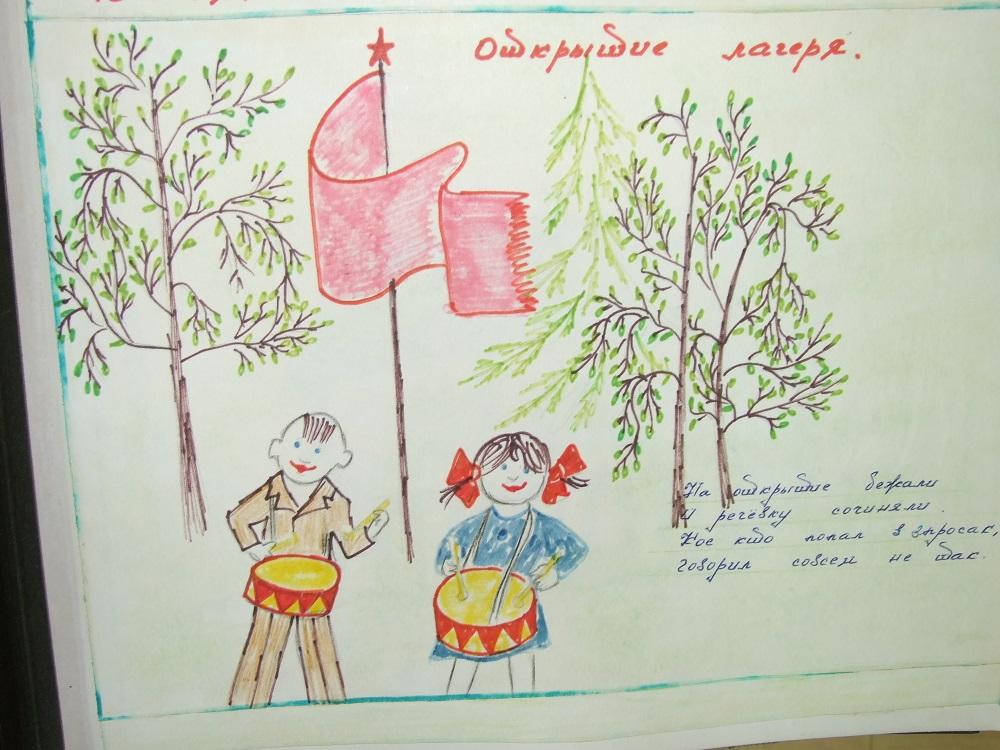 Открытие лагеря.
На открытие бежали
И речёвку сочиняли.
Кое кто попал в впросак,
говорил совсем не так.